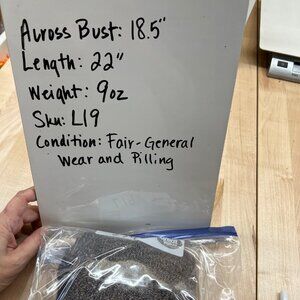 Across Bust: 18.5"
Length: 22"
Weight: 9oz
Sku: L19
Condition: Fair-General
Wear and Pilling